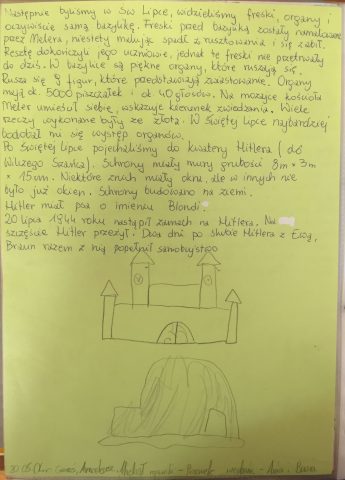 Następnie byliśmy w Św Lipce, widzieliśmy freski, organy i
oczywiście samą bazylikę. Freski przed bazyliką zostały namalowane
przez Melera, niestety malując spadł z rusztowania i się zabił.
Resztę dokończyli jego uczniowie, jednak te freski nie przetrwały
do dziś. W bazylice są piękne organy, które ruszają się.
Rusza się 9 figur, które przedstawiają zwiastowanie. Organy
mają ok. 5000 piszczałek i ok 40 głosów. Na mozaice kościoła
Meler umieścił siebie, wskazuje kierunek zwiedzania. Wiele
rzeczy wykonane były ze złota. W Świętej Lipce najbardziej
podobał mi się występ organów.
Po Świętej Lipce pojechaliśmy do kwatery Hitlera (do
Wilczego Szańca). Schrony miały mury grubości 8m × 3m
× 15 m. Niektóre z nich miały okna, ale w innych nie
było już okien. Schrony budowano na ziemi.
Hitler miał psa o imieniu Blondi.
20 lipca 1944 roku nastąpił zamach na Hitlera. Na
szczęście Hitler przeżył. Dwa dni po ślubie Hitlera z Ewą,
Braun razem z nią popełnił samobójstwo
20.05 Amadeusz, Michał